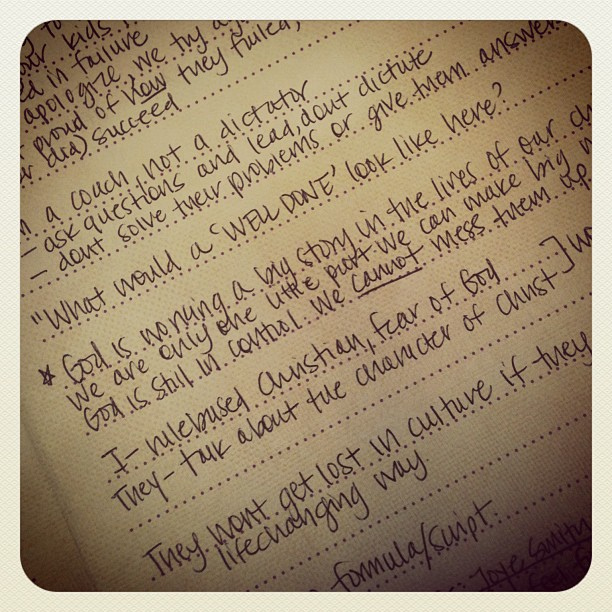 our kids
ed in failure
apologize, we try
proud of how they failed,
did) succeed
a coach, not a dictator
- ask questions and lead, dont dictate
- dont solve their problems or give them answer
"What would a 'WELL DONE' look like here?
* God is working a big story in the lives of our
we are only one little part. we can make big
God is still in control. We cannot mess them up
I - rulebased Christian, fear of God ]
They - talk about the character of Christ
They wont get lost in culture if they
lifechanging way
formula/script.